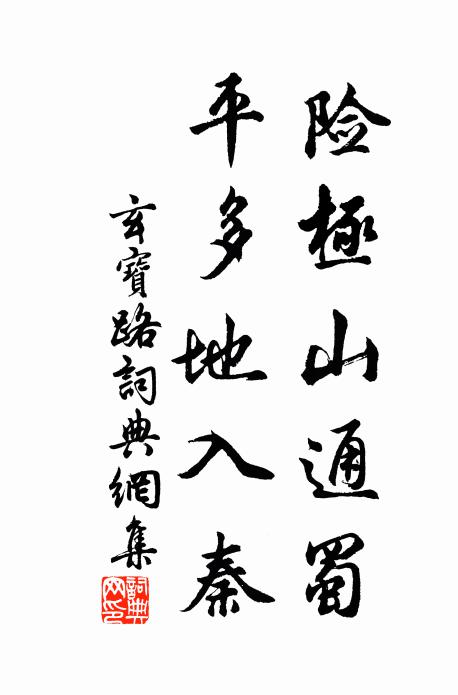 险極山通蜀
平多地入秦
玄寶路詞典網集
詞典網印